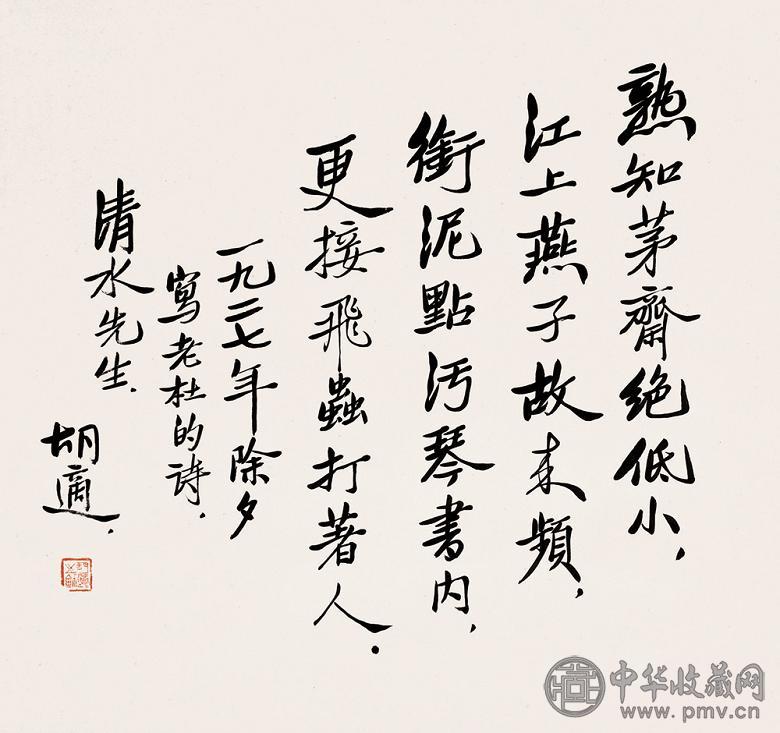 熟知茅齋绝低小，
江上燕子故来頻，
銜泥點污琴書内，
更接飛蟲打著人．
一九二七年除夕
寫老杜的诗．
清水先生．
胡適．
中华收藏网
www.pmv.cn